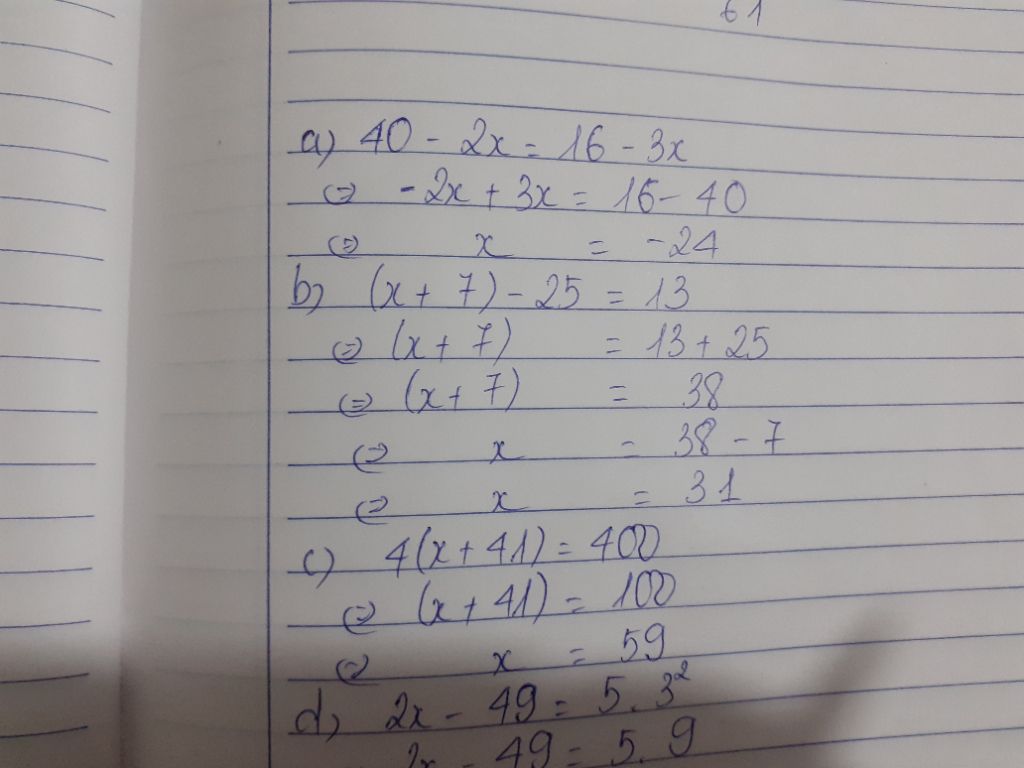 61
a) 40 - 2x = 16 - 3x
⇔ -2x + 3x = 16 - 40
⇔ x = -24
b) (x + 7) - 25 = 13
⇔ (x + 7) = 13 + 25
⇔ (x + 7) = 38
⇔ x = 38 - 7
⇔ x = 31
c) 4(x + 41) = 400
⇔ (x + 41) = 100
⇔ x = 59
d) 2x - 49 = 5 . 3²
2x - 49 = 5 . 9